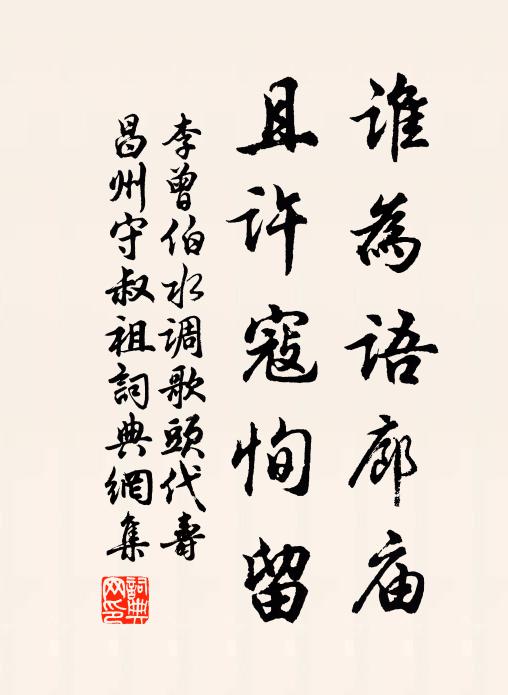 誰為語廊庙
且許寇恂留
李曾伯水调歌頭代壽
昌州守叔祖詞典網集